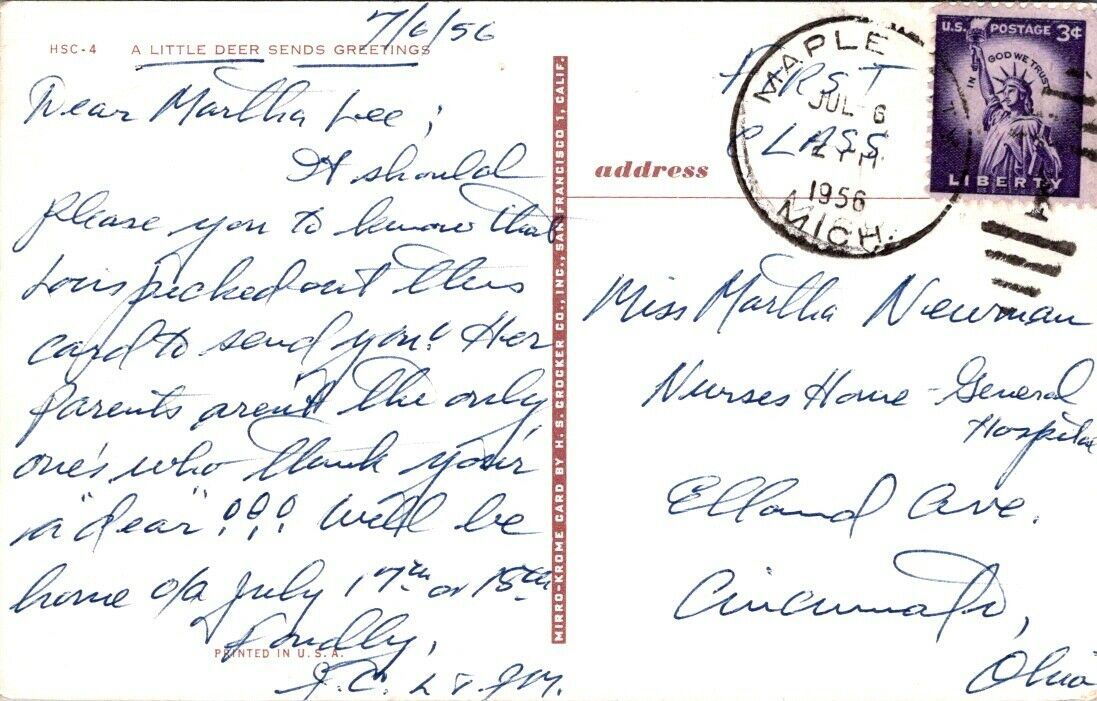 7/6/56
HSC-4 A LITTLE DEER SENDS GREETINGS
Dear Martha Lee;
It should
please you to know that
Lois picked out this
card to send you! Her
parents aren't the only
one's who think your
a "dear"!!! Will be
home o/a July 17th or 18th
Fondly,
J.C. L & J.M.
PRINTED IN U.S.A.
MIRRO-KROME CARD BY H. S. CROCKER CO., INC., SAN FRANCISCO 1, CALIF.
FIRST
CLASS
address
MAPLE
JUL 6
1956
MICH.
U.S. POSTAGE 3¢
IN GOD WE TRUST
LIBERTY
Miss Martha Newman
Nurses Home - General
Hospital
Elland Ave.
Cincinnati,
Ohio